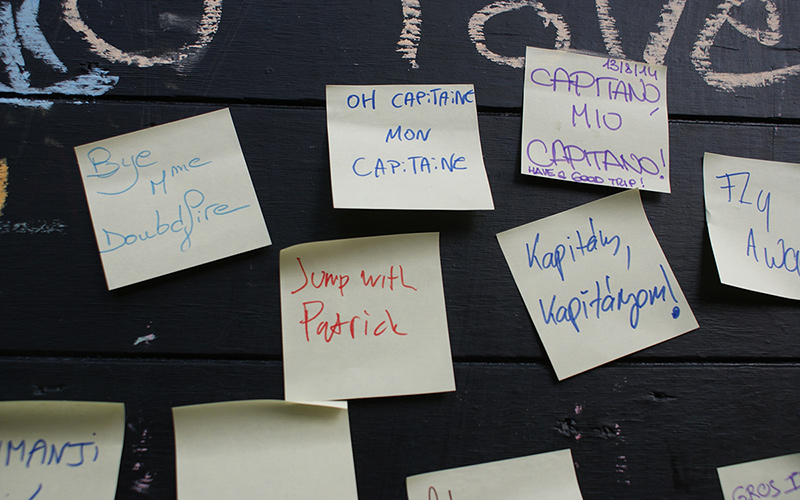 Bye
Mme
Doubdfire
OH CAPiTAiNE
MON
CAPiTAiNE
13/8/14
CAPITANO,
MIO
CAPITANO!
HAVE A GOOD TRIP!
FLy
AWA
Jump with
Patrick
Kapitány,
Kapitányom!
MANJi
GROS